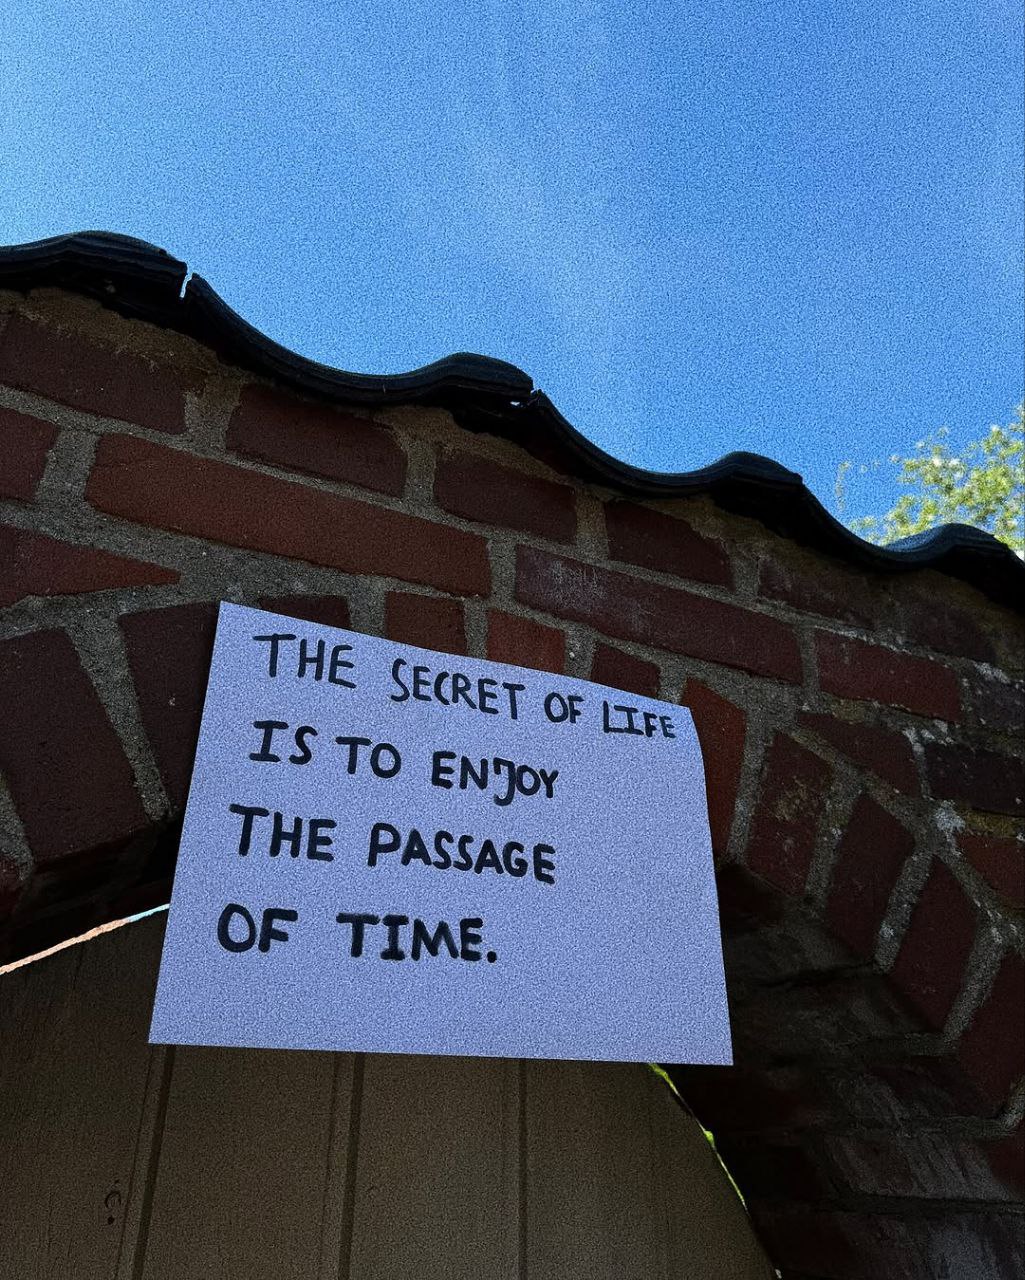 THE SECRET OF LIFE
IS TO ENJOY
THE PASSAGE
OF TIME.